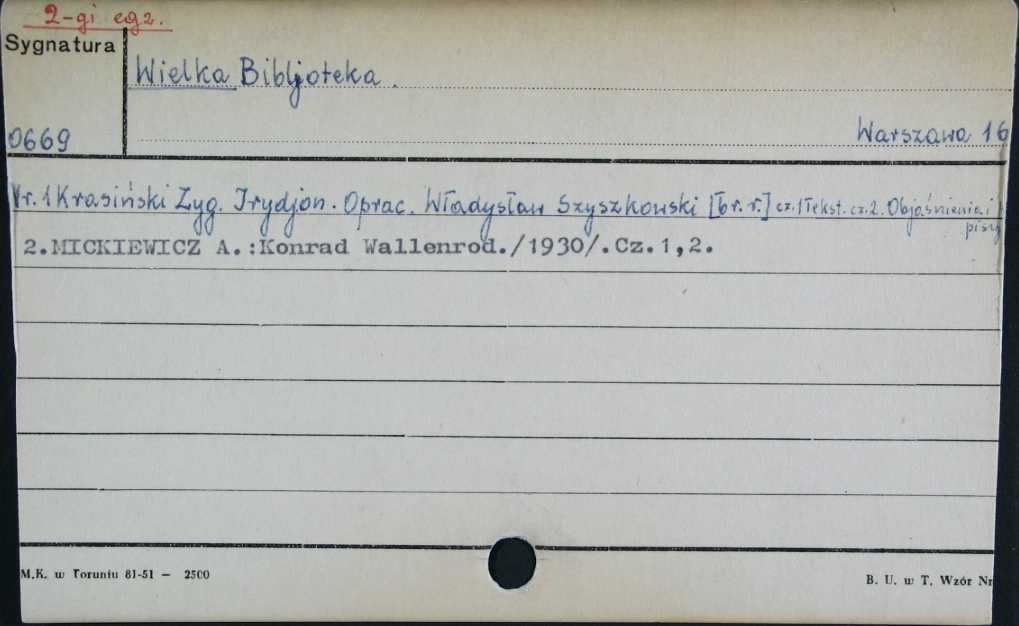 2-gi egz.
Sygnatura
Wielka Bibljoteka.
0669
Warszawa 16
Nr. 1 Krasiński Zyg. Irydjon. Oprac. Władysław Szyszkowski [b.r.r.] cz.1 Tekst. cz.2. Objaśnienia i
pisy
2.MICKIEWICZ A.:Konrad Wallenrod./1930/.Cz.1,2.
M.K. w Toruniu 81-51 — 2500
B. U. w T. Wzór Nr